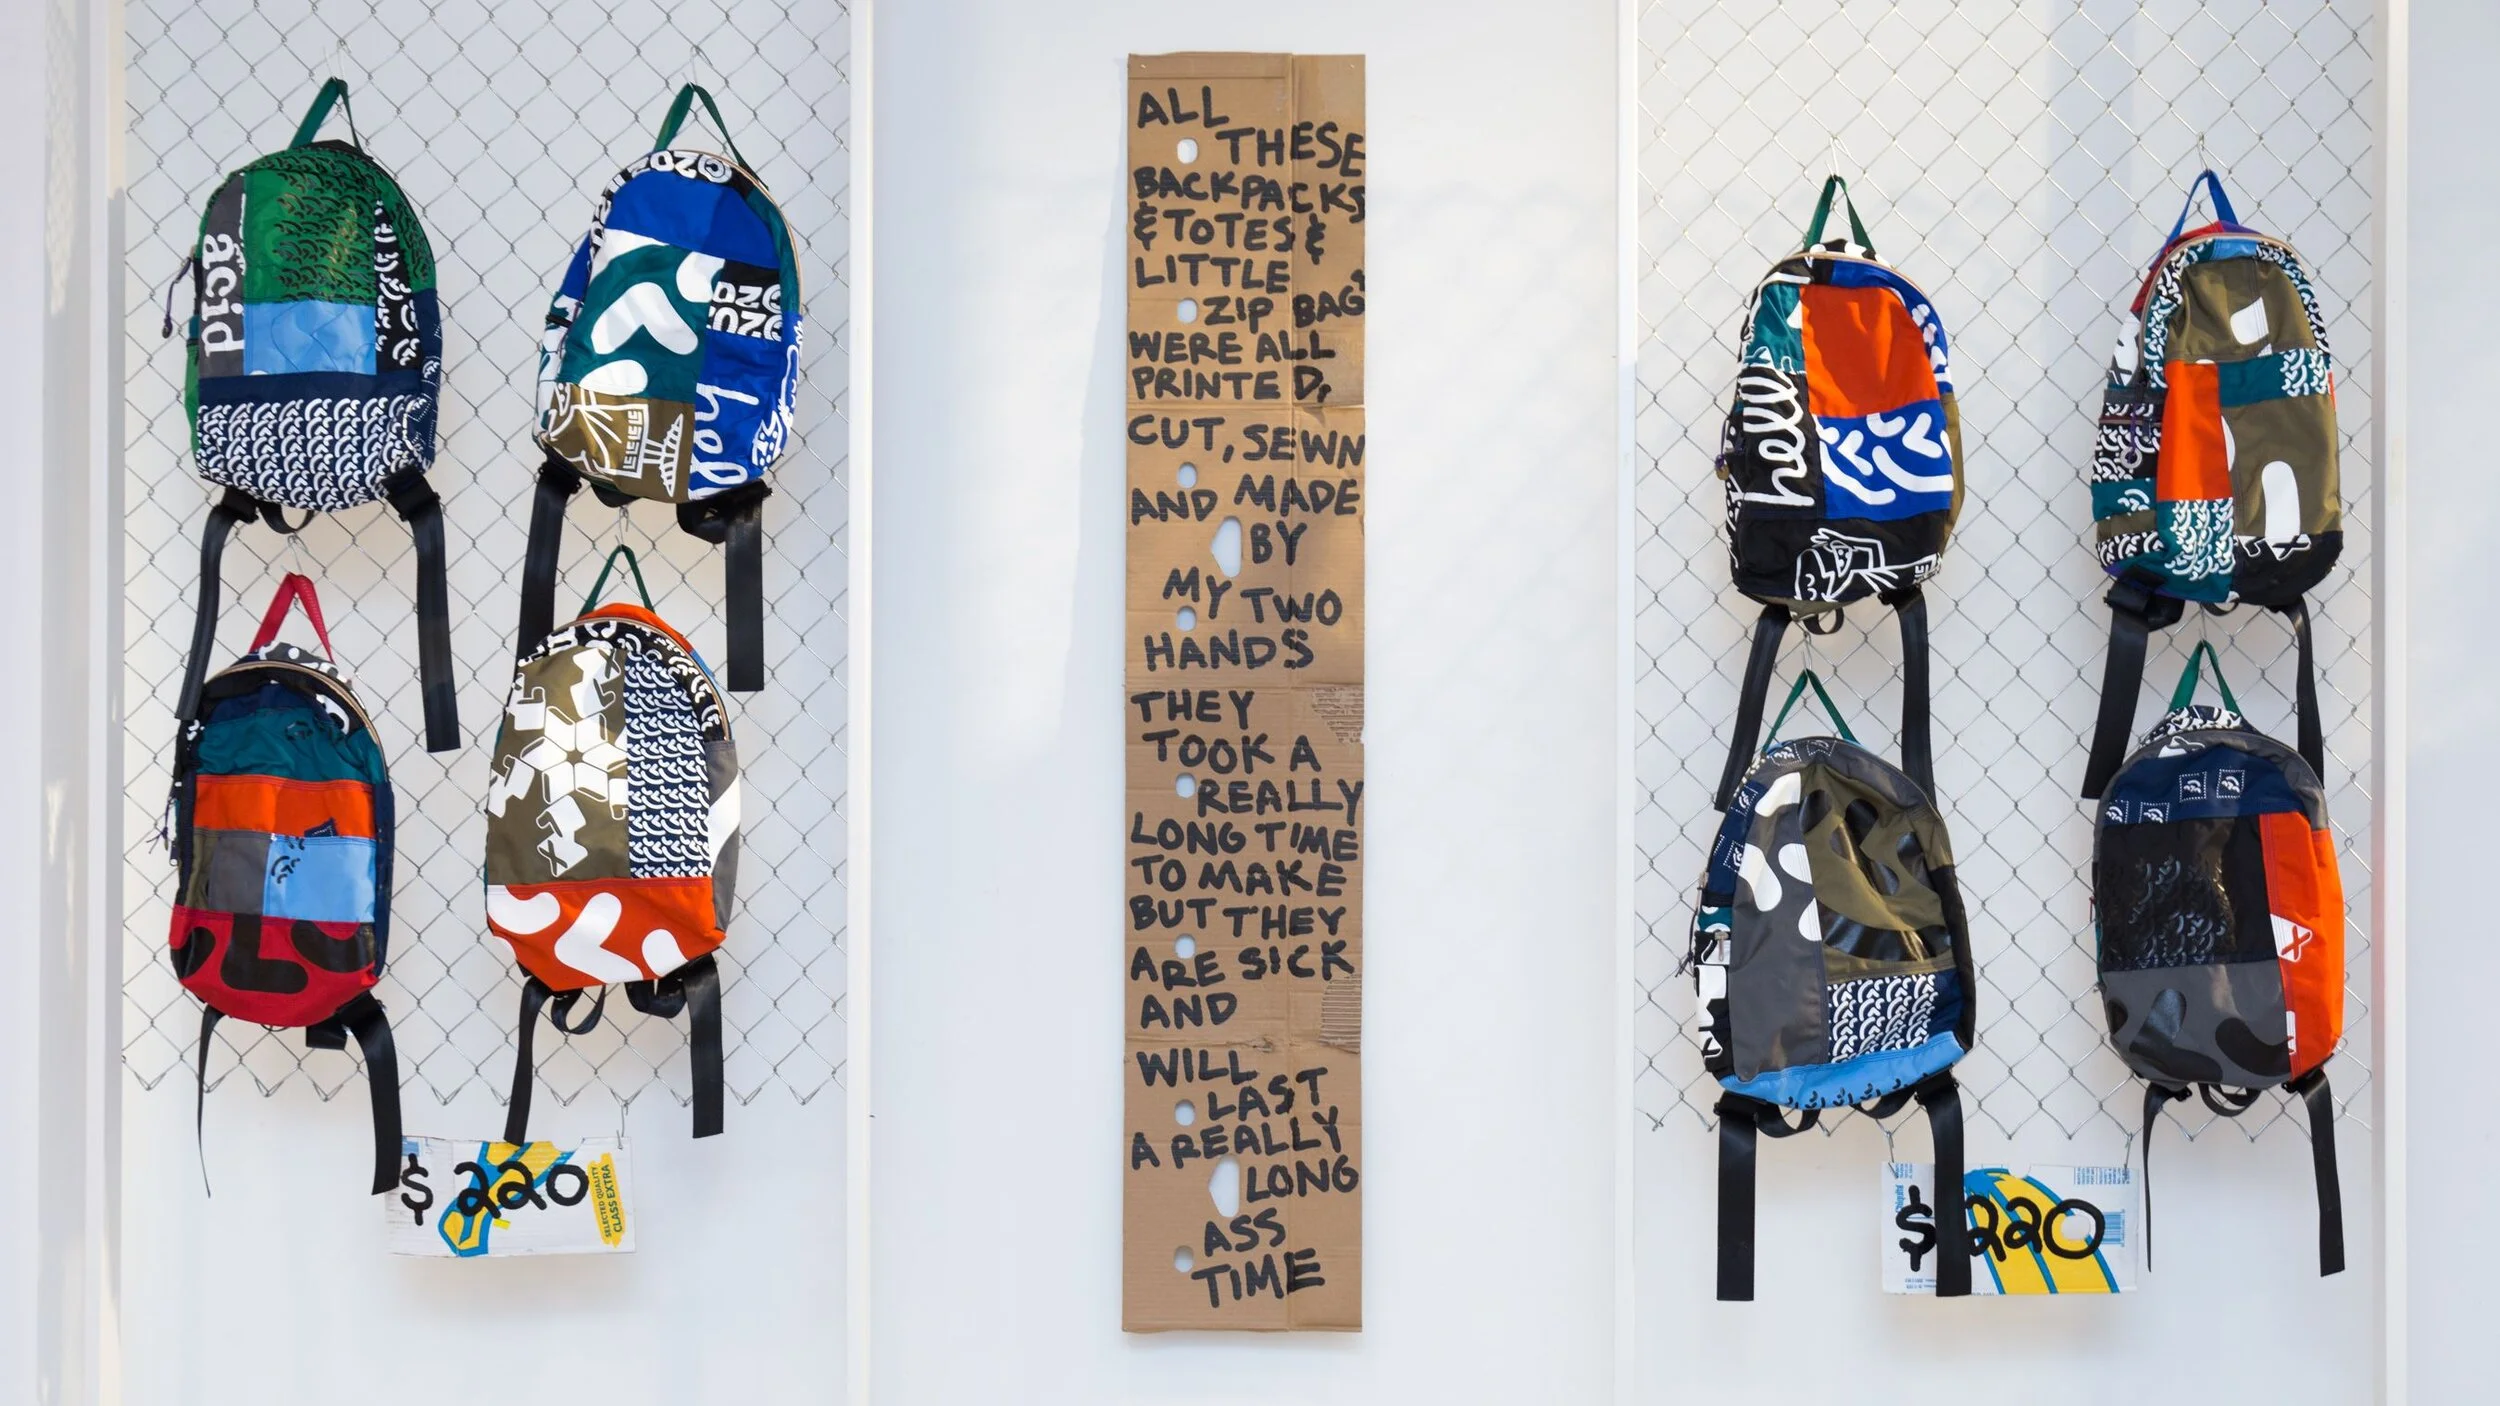 acid
hell
hell
ALL
THESE
BACKPACKS
& TOTES &
LITTLE
ZIP BAGS
WERE ALL
PRINTED,
CUT, SEWN
AND MADE
BY
MY TWO
HANDS
THEY
TOOK A
REALLY
LONG TIME
TO MAKE
BUT THEY
ARE SICK
AND
WILL
LAST
A REALLY
LONG
ASS
TIME
$220
SELECTED QUALITY
CLASS EXTRA
$220
Chiquita